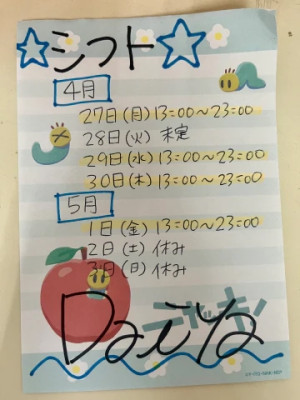 シフト
4月
27日(月)13:00〜23:00
28日(火)未定
29日(水)13:00〜23:00
30日(木)13:00〜23:00
5月
1日(金)13:00〜23:00
2日(土)休み
3日(日)休み